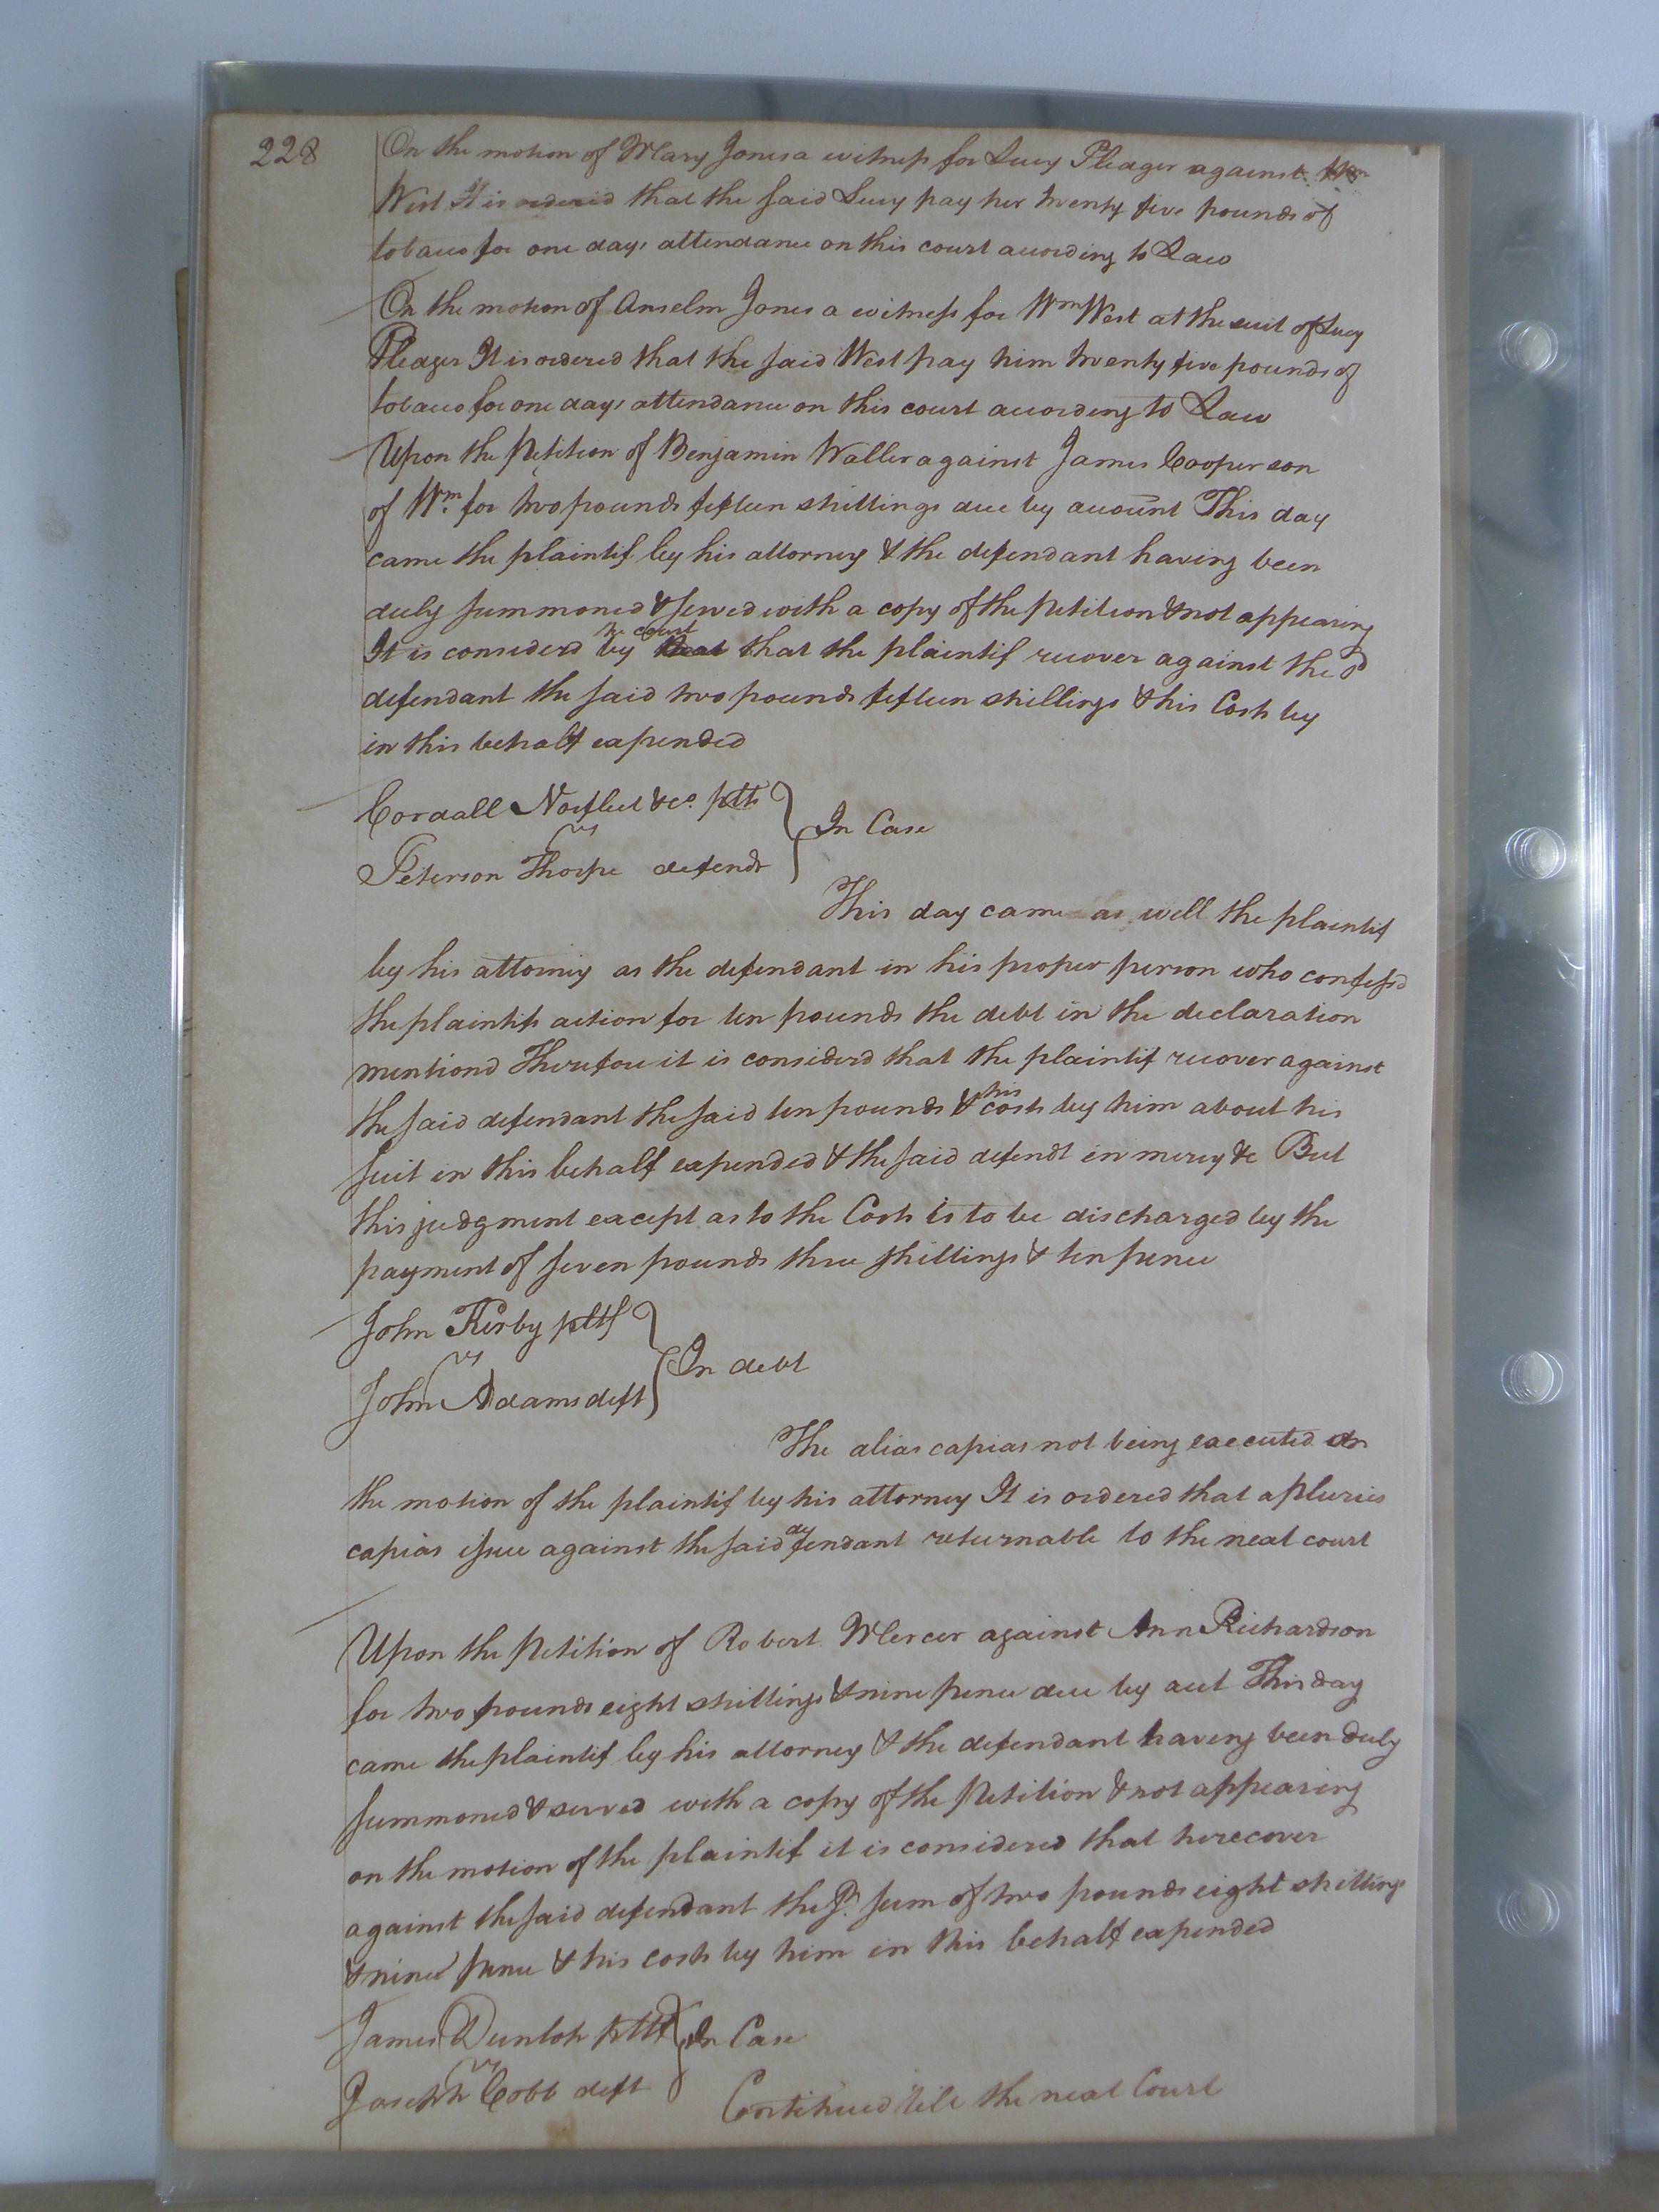 228
On the motion of Mary Jones a witness for Lucy Pleager against Wm
West It is ordered that the said Lucy pay her twenty five pounds of
tobacco for one days attendance on this court according to Law
On the motion of Anselm Jones a witness for Wm West at the suit of Lucy
Pleager It is ordered that the said West pay him twenty five pounds of
tobacco for one days attendance on this court according to Law
Upon the Petition of Benjamin Waller against James Cooper son
of Wm. for two pounds fifteen shillings due by account This day
came the plaintif by his attorney & the defendant having been
duly summoned & served with a copy of the petition & not appearing
It is considerd by the court that the plaintif recover against the sd
defendant the said two pounds fifteen shillings & his Costs by
in this behalf expended
Cordall Norfleet & co. plts
vs
Peterson Thorpe defendt
In Case
This day came as well the plaintif
by his attorney as the defendant in his proper person who confessd
the plaintifs action for ten pounds the debt in the declaration
mentiond Therefore it is considerd that the plaintif recover against
the said defendant the said ten pounds & his costs by him about his
suit in this behalf expended & the said defendt in mercy &c But
this judgment except as to the Costs is to be discharged by the
payment of seven pounds three shillings & ten pence
John Kirby pltf
vs
John Adams deft
In debt
The alias capias not being executed on
the motion of the plaintif by his attorney It is ordered that a pluries
capias issue against the said defendant returnable to the next court
Upon the Petition of Robert Mercer against Ann Richardson
for two pounds eight shillings & nine pence due by acct This day
came the plaintif by his attorney & the defendant having been duly
summoned & served with a copy of the Petition & not appearing
on the motion of the plaintif it is considered that he recover
against the said defendant the sd. sum of two pounds eight shillings
& nine pence & his costs by him in this behalf expended
James Dunlop pltf
vs
Joseph Cobb deft
In Case
Continued till the next Court